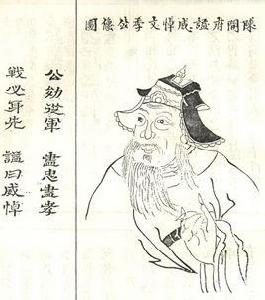 陳開府諡威悼文季公像圖
公幼從軍 盡忠盡孝
戰必身先 諡曰威悼